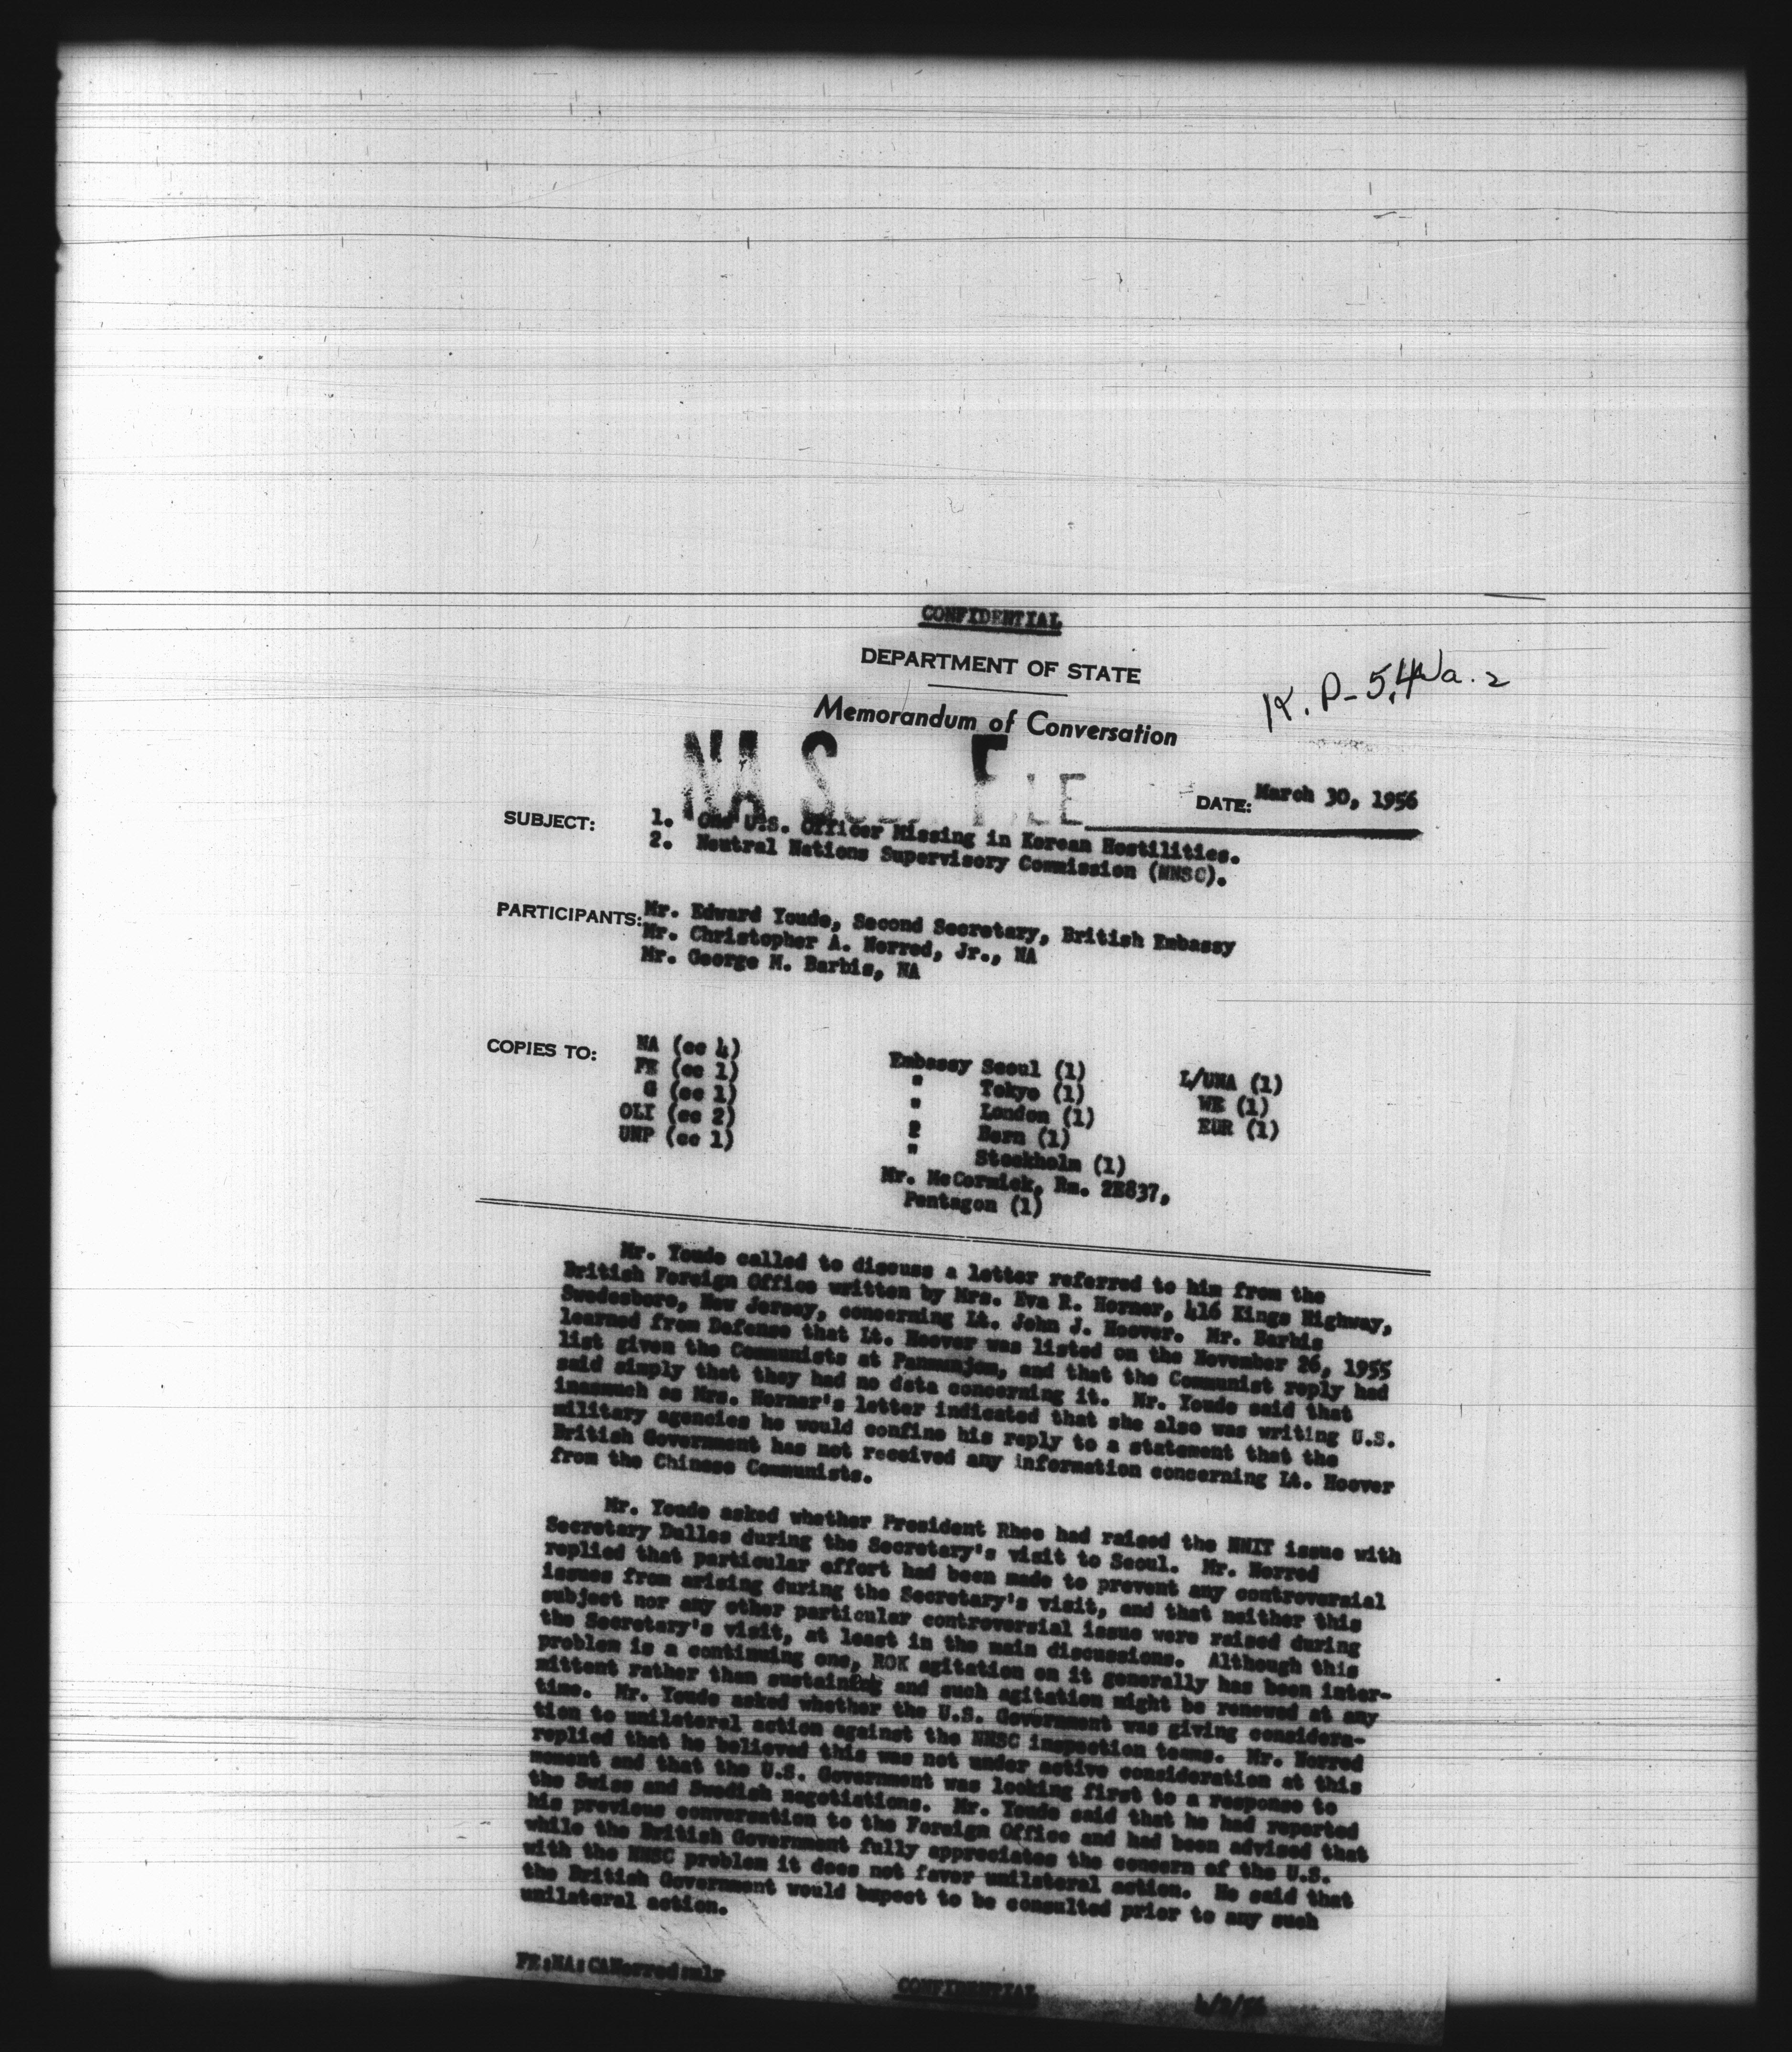 CONFIDENTIAL
DEPARTMENT OF STATE
Memorandum of Conversation
K. P- 5.4 Na. 2
NA S F ILE
DATE: March 30, 1956
SUBJECT: 1. One U.S. Officer Missing in Korean Hostilities.
2. Neutral Nations Supervisory Commission (NNSC).
PARTICIPANTS: Mr. Edward Youde, Second Secretary, British Embassy
Mr. Christopher A. Norred, Jr., NA
Mr. George M. Barbis, NA
COPIES TO: NA (cc 4)
FE (cc 1)
G (cc 1)
OLI (cc 2)
UNP (cc 1)
Embassy Seoul (1)
" Tokyo (1)
" London (1)
" Bern (1)
" Stockholm (1)
Mr. McCormick, Rm. 2E837,
Pentagon (1)
L/UNA (1)
WE (1)
EUR (1)
Mr. Youde called to discuss a letter referred to him from the
British Foreign Office written by Mrs. Eva R. Horner, 416 Kings Highway,
Swedesboro, New Jersey, concerning Lt. John J. Hoover. Mr. Barbis
learned from Defense that Lt. Hoover was listed on the November 26, 1955
list given the Communists at Panmunjom, and that the Communist reply had
said simply that they had no data concerning it. Mr. Youde said that
inasmuch as Mrs. Horner's letter indicated that she also was writing U.S.
military agencies he would confine his reply to a statement that the
British Government has not received any information concerning Lt. Hoover
from the Chinese Communists.
Mr. Youde asked whether President Rhee had raised the NNIT issue with
Secretary Dulles during the Secretary's visit to Seoul. Mr. Norred
replied that particular effort had been made to prevent any controversial
issues from arising during the Secretary's visit, and that neither this
subject nor any other particular controversial issue were raised during
the Secretary's visit, at least in the main discussions. Although this
problem is a continuing one, ROK agitation on it generally has been inter-
mittent rather than sustaining and such agitation might be renewed at any
time. Mr. Youde asked whether the U.S. Government was giving considera-
tion to unilateral action against the NNSC inspection teams. Mr. Norred
replied that he believed this was not under active consideration at this
moment and that the U.S. Government was looking first to a response to
the Swiss and Swedish negotiations. Mr. Youde said that he had reported
his previous conversation to the Foreign Office and had been advised that
while the British Government fully appreciates the concern of the U.S.
with the NNSC problem it does not favor unilateral action. He said that
the British Government would expect to be consulted prior to any such
unilateral action.
FE:NA:CANorred:mlr
CONFIDENTIAL
4/2/56